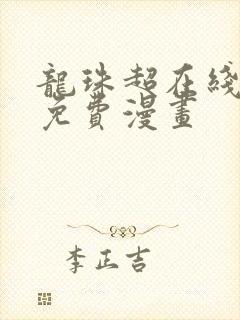 龍珠超在綫
免費漫畫
李正吉